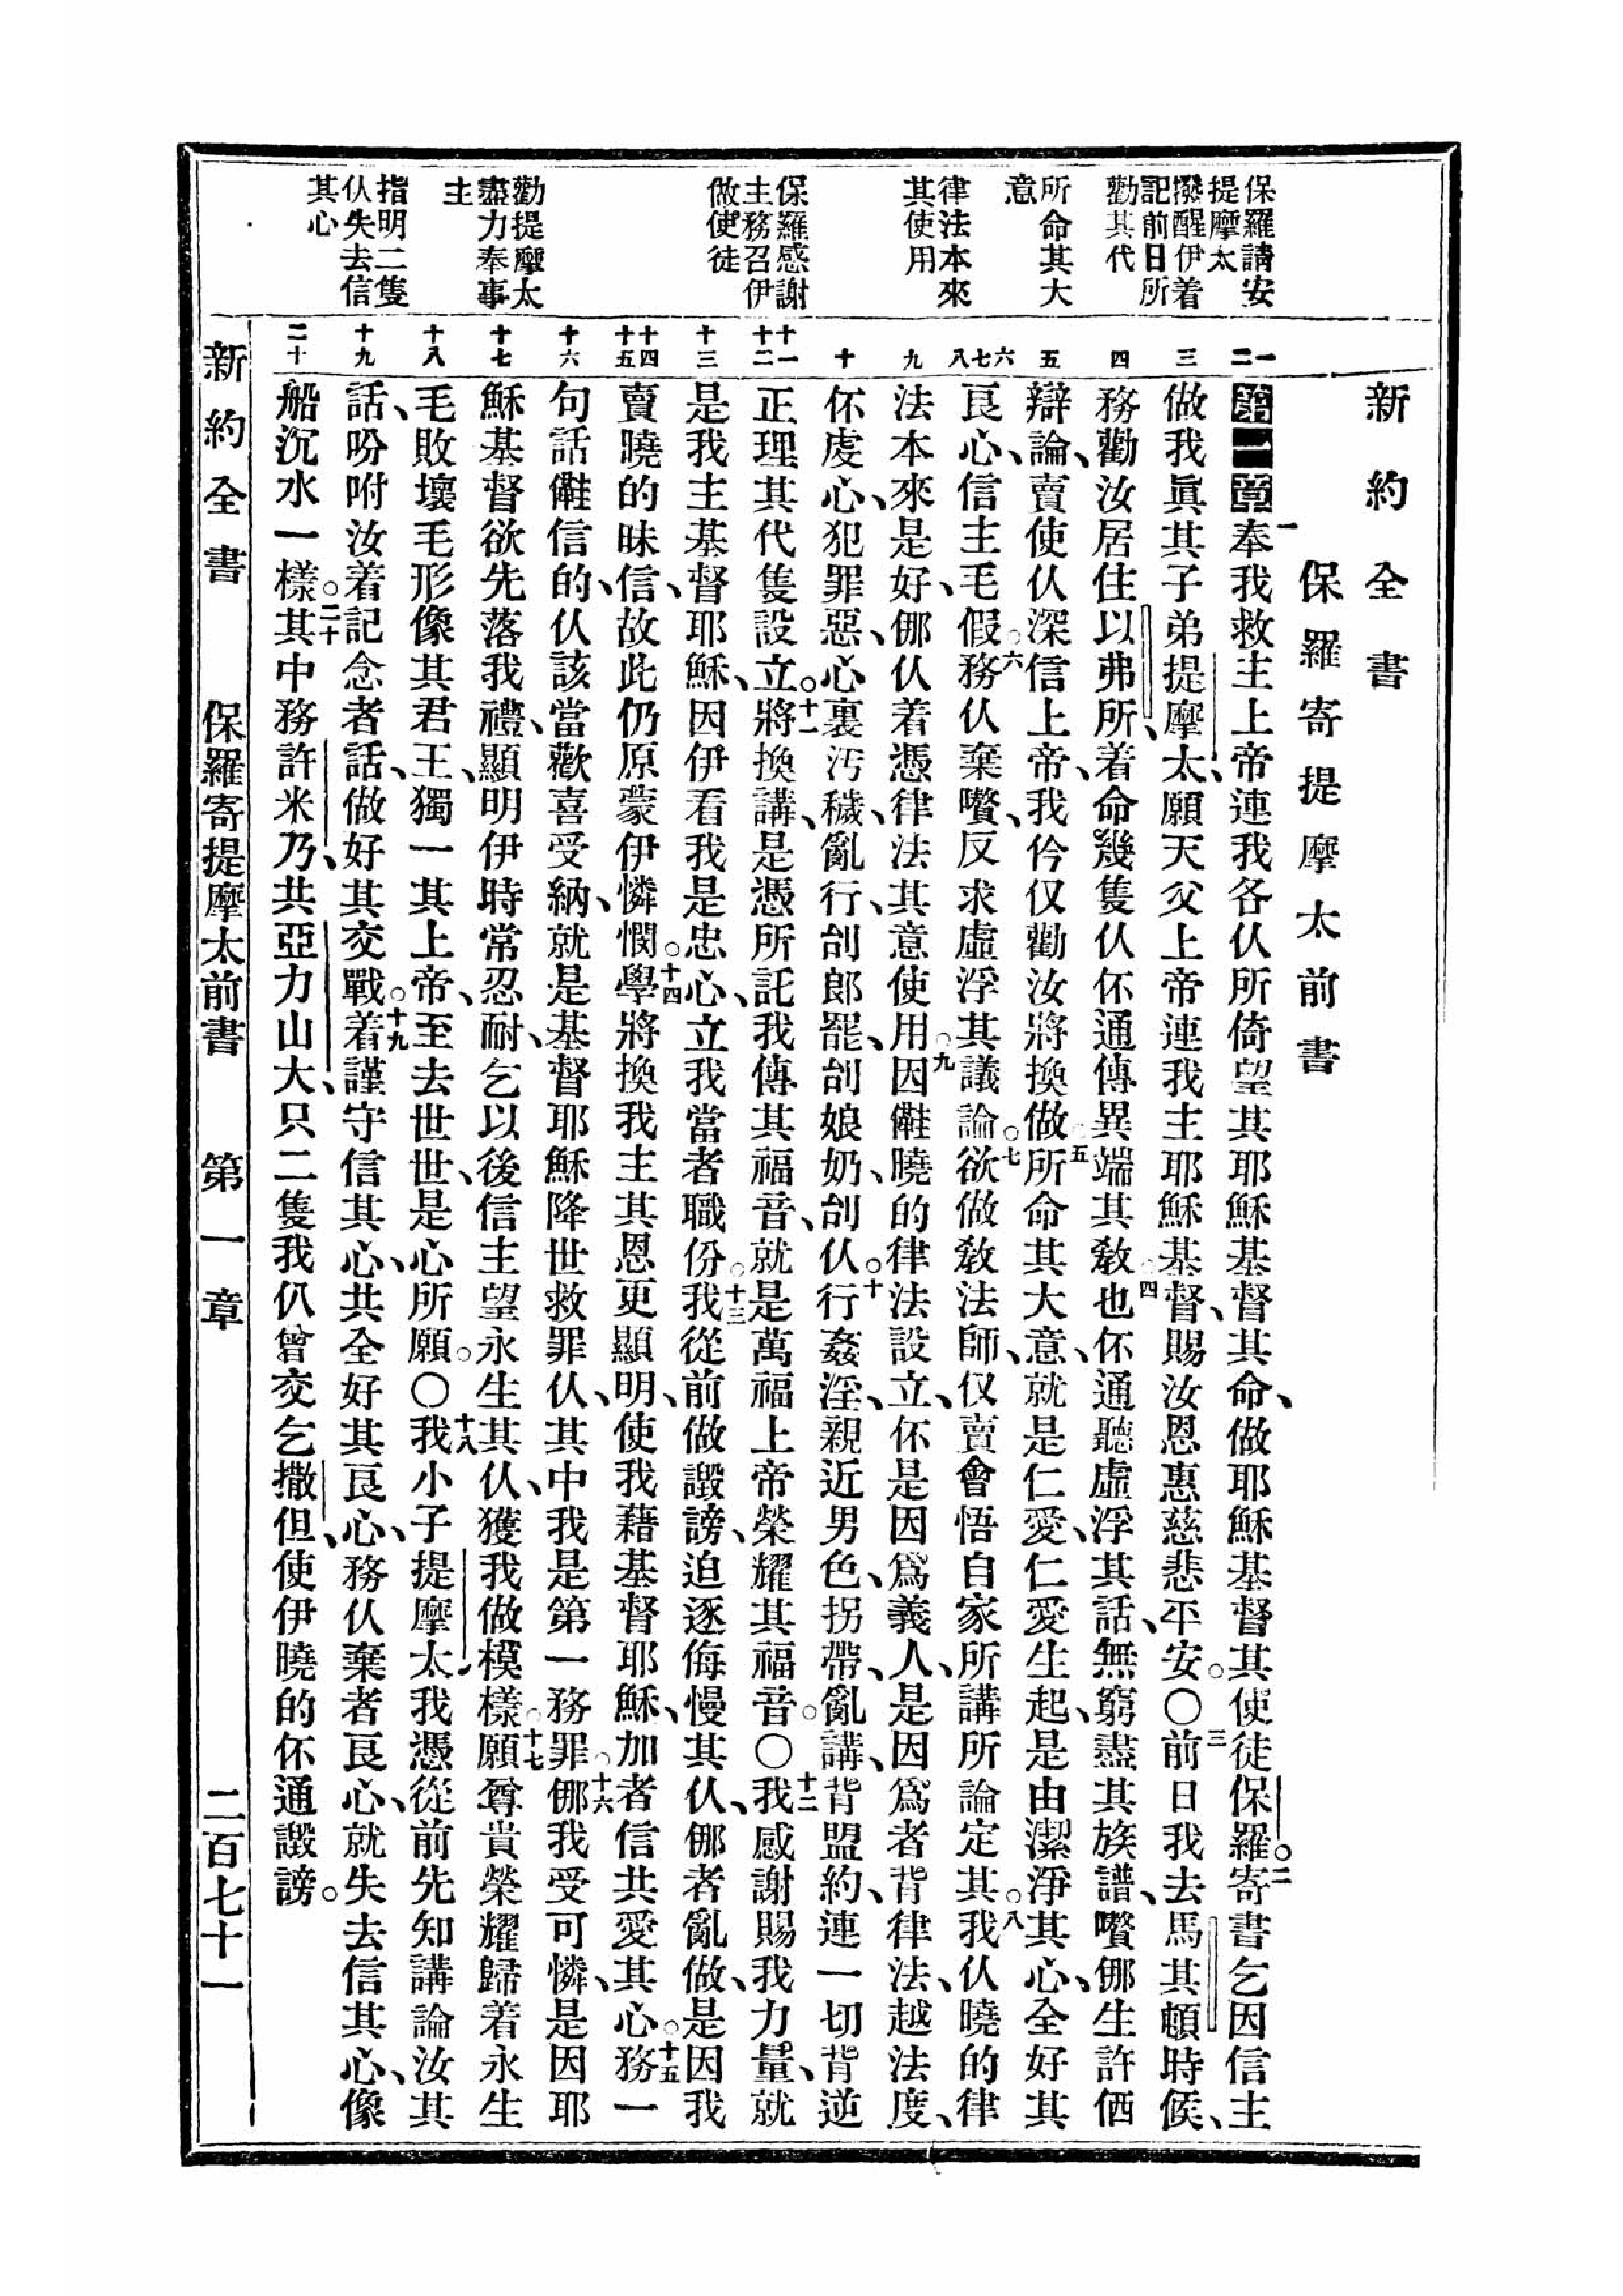 新約全書
保羅寄提摩太前書
保羅請安
提摩太
撥醒伊着
記前日所
勸其代
所命其大
意
律法本來
其使用
保羅感謝
主務召伊
做使徒
勸提摩太
盡力奉事
主
指明二隻
仈失去信
其心
一
二
三
四
五
六
七
八
九
十
十一
十二
十三
十四
十五
十六
十七
十八
十九
二十
第一章一奉我救主上帝連我各仈所倚望其耶穌基督其命、做耶穌基督其使徒保羅。二寄書乞因信主
做我眞其子弟提摩太、願天父上帝連我主耶穌基督、賜汝恩惠慈悲平安。〇三前日我去馬其頓時候、
務勸汝居住以弗所、着命幾隻仈伓通傳異端其敎。四也伓通聽虛浮其話、無窮盡其族譜、嚽𠆧生許価
辯論、賣使仈深信上帝、我仱仅勸汝將換做。五所命其大意、就是仁愛、仁愛生起、是由潔淨其心、全好其
良心、信主毛假。六務仈棄嚽、反求虛浮其議論。七欲做敎法師、仅賣會悟自家所講所論定其。八我仈曉的律
法本來是好、𠆧仈着憑律法其意使用。九因䧿曉的律法設立、伓是因爲義人、是因爲者背律法、越法度、
伓虔心、犯罪惡、心裏汚穢、亂行、刣郎罷、刣娘奶、刣仈。十行姦淫、親近男色、拐帶、亂講、背盟約、連一切背逆
正理其代隻設立。十一將換講、是憑所託我傳其福音、就是萬福上帝榮耀其福音。〇十二我感謝賜我力量、就
是我主基督耶穌、因伊看我是忠心、立我當者職份。十三我從前做譭謗、迫逐侮慢其仈、𠆧者亂做、是因我
賣曉的昧信、故此仍原蒙伊憐憫。十四學將換我主其恩更顯明、使我藉基督耶穌、加者信共愛其心。十五務一
句話䧿信的、仈該當歡喜受納、就是基督耶穌降世救罪仈、其中我是第一務罪。十六𠆧我受可憐、是因耶
穌基督欲先落我禮、顯明伊時常忍耐、乞以後信主望永生其仈、獲我做模樣。十七願尊貴榮耀歸着永生
毛敗壞毛形像其君王、獨一其上帝、至去世世、是心所願。〇十八我小子提摩太、我憑從前先知講論汝其
話、吩咐汝着記念者話、做好其交戰。十九着謹守信其心、共全好其良心、務仈棄者良心、就失去信其心、像
船沉水一樣。二十其中務許米乃、共亞力山大、只二隻我仈曾交乞撒但、使伊曉的伓通譭謗。
新約全書
保羅寄提摩太前書
第一章
二百七十一